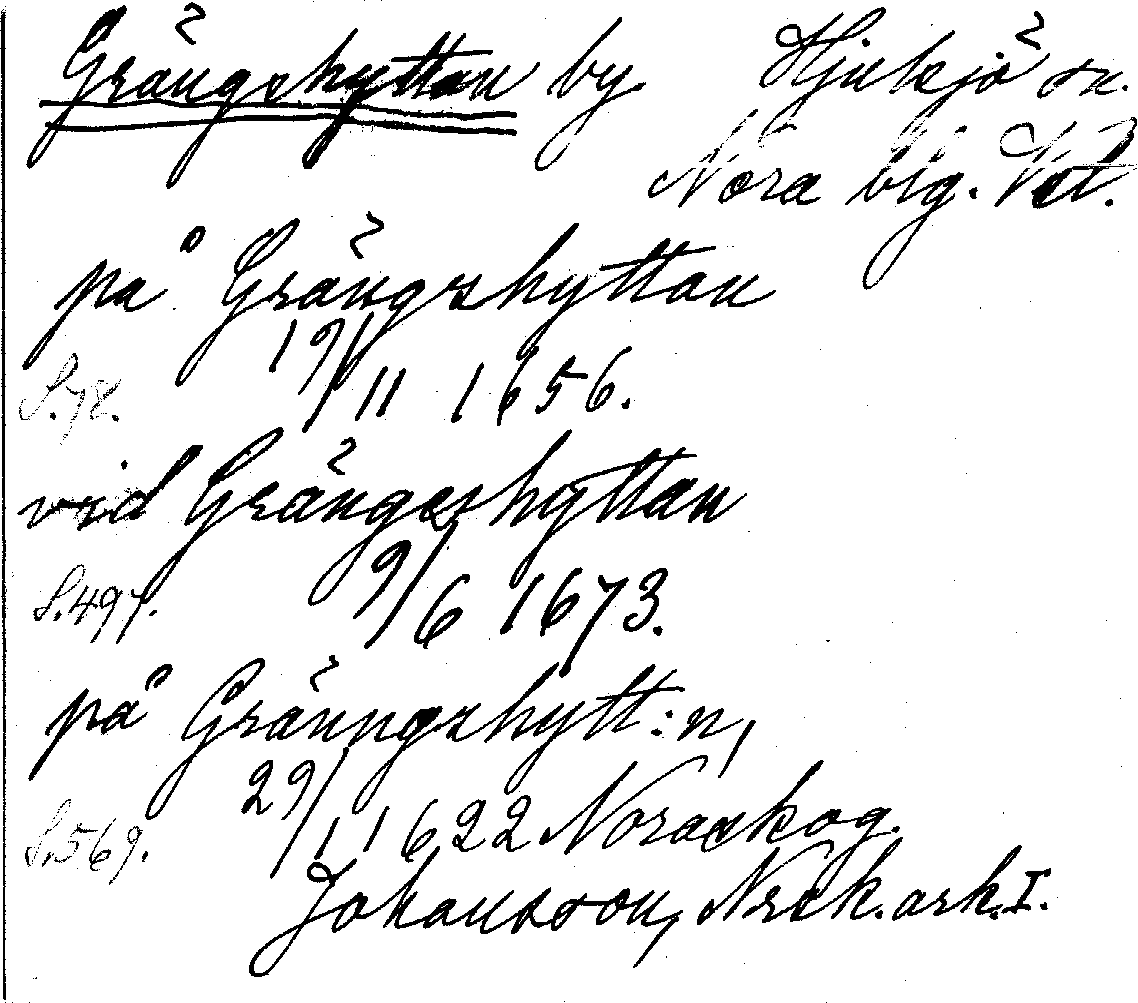 Grängshyttan by Hjulsjö sn.
Nora bsg. Vstl.
på Grängshyttan
S.78. 19/11 1656.
vid Grängeshyttan
S.497. 9/6 1673.
på Gränngshytt:n,
S.569. 29/1 1622 Noraskog.
Johansson, Nrsk. ark. I.